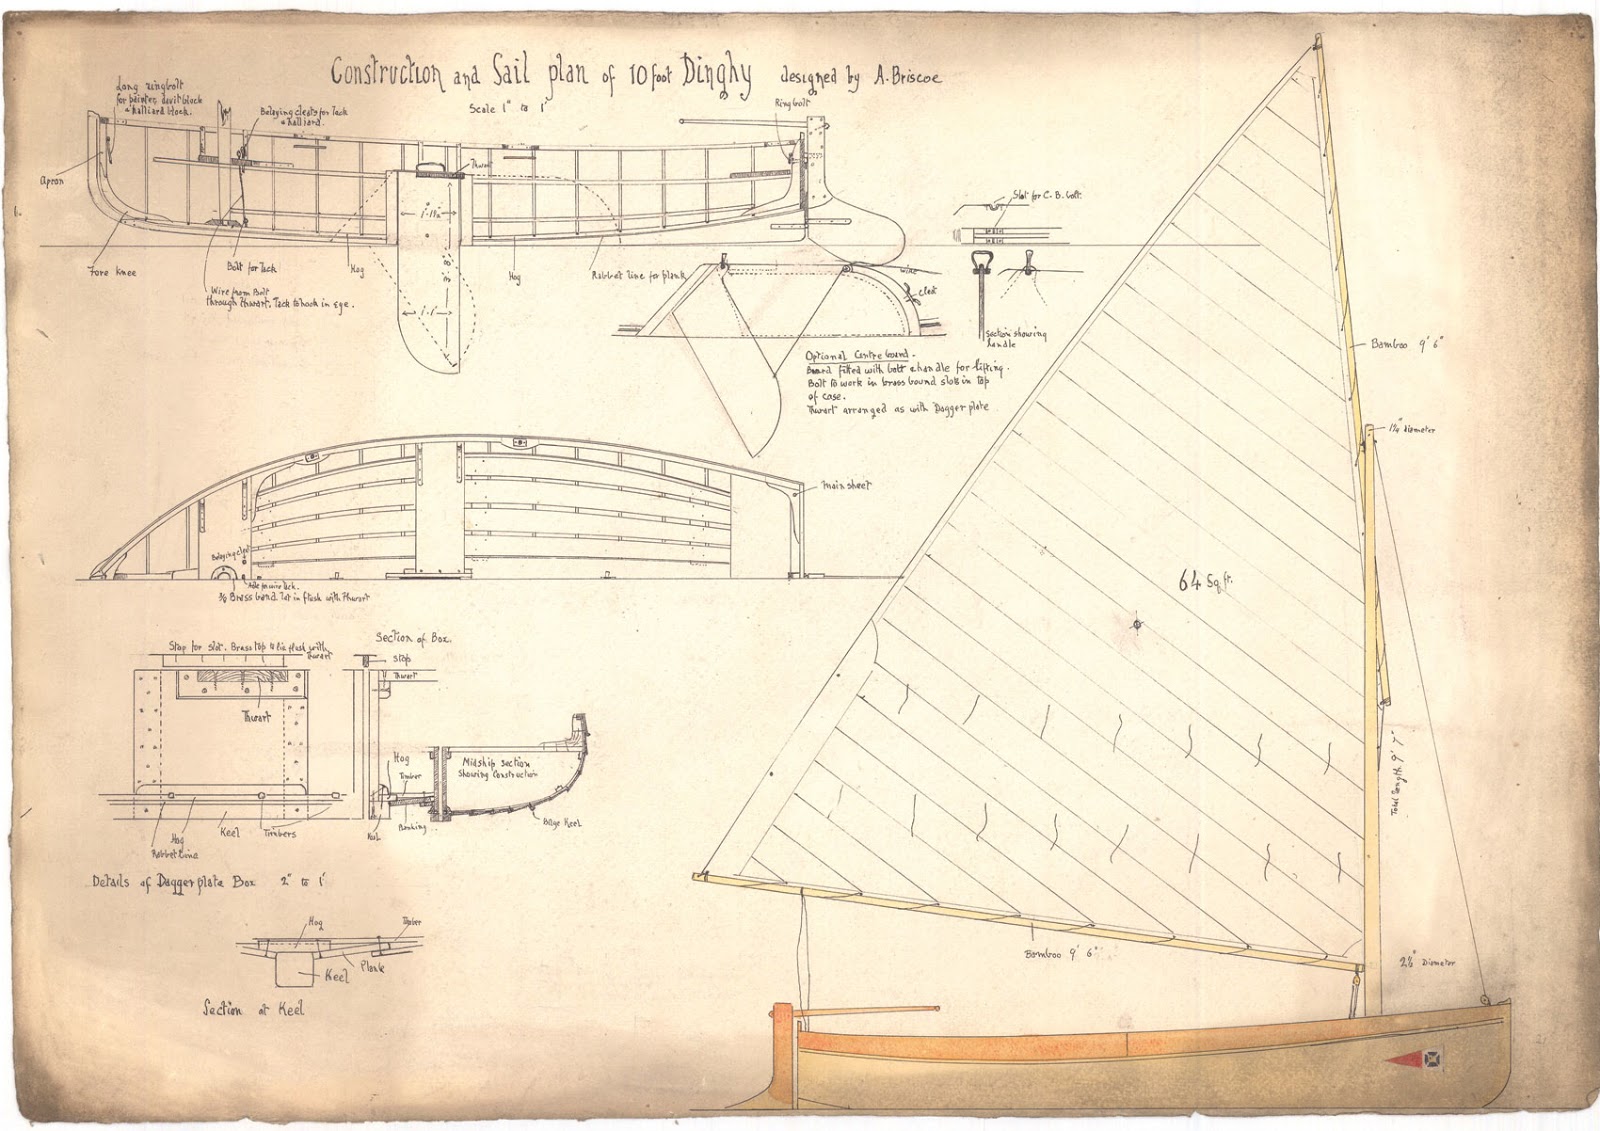 Construction and Sail plan of 10 foot Dinghy designed by A. Briscoe
Scale 1" to 1'
Long ringbolt
for painter, davit block
& halliard block.
Belaying cleats for Tack
& halliard.
Ringbolt
Apron
Thwart
Fore Knee
Bolt for Tack
Wire from Bolt
through thwart. Tack to hook in Eye.
Hog
Hog
Rabbet line for plank
wire
cleat
Slot for C. B. bolt.
Section showing
handle
Optional Centre board.
Board fitted with bolt & handle for lifting.
Bolt to work in brass bound slots in top
of case.
Thwart arranged as with Dagger plate
Main sheet
Belaying cleat
Hole for wire tack.
3/8 Brass band let in flush with thwart
Stop for slot. Brass top to lie flush with
thwart
Thwart
Hog
Keel
Timbers
Rabbet Line
Details of Dagger plate Box 2" to 1'
Section of Box.
Stop
Thwart
Hog
Timber
Keel
Planking
Midship section
Showing Construction
Bilge Keel
Hog
Timber
Plank
Keel
Section at Keel
Bamboo 9' 6"
Diameter
64 Sq. ft.
Total length 9' 7"
Bamboo 9' 6"
Diameter